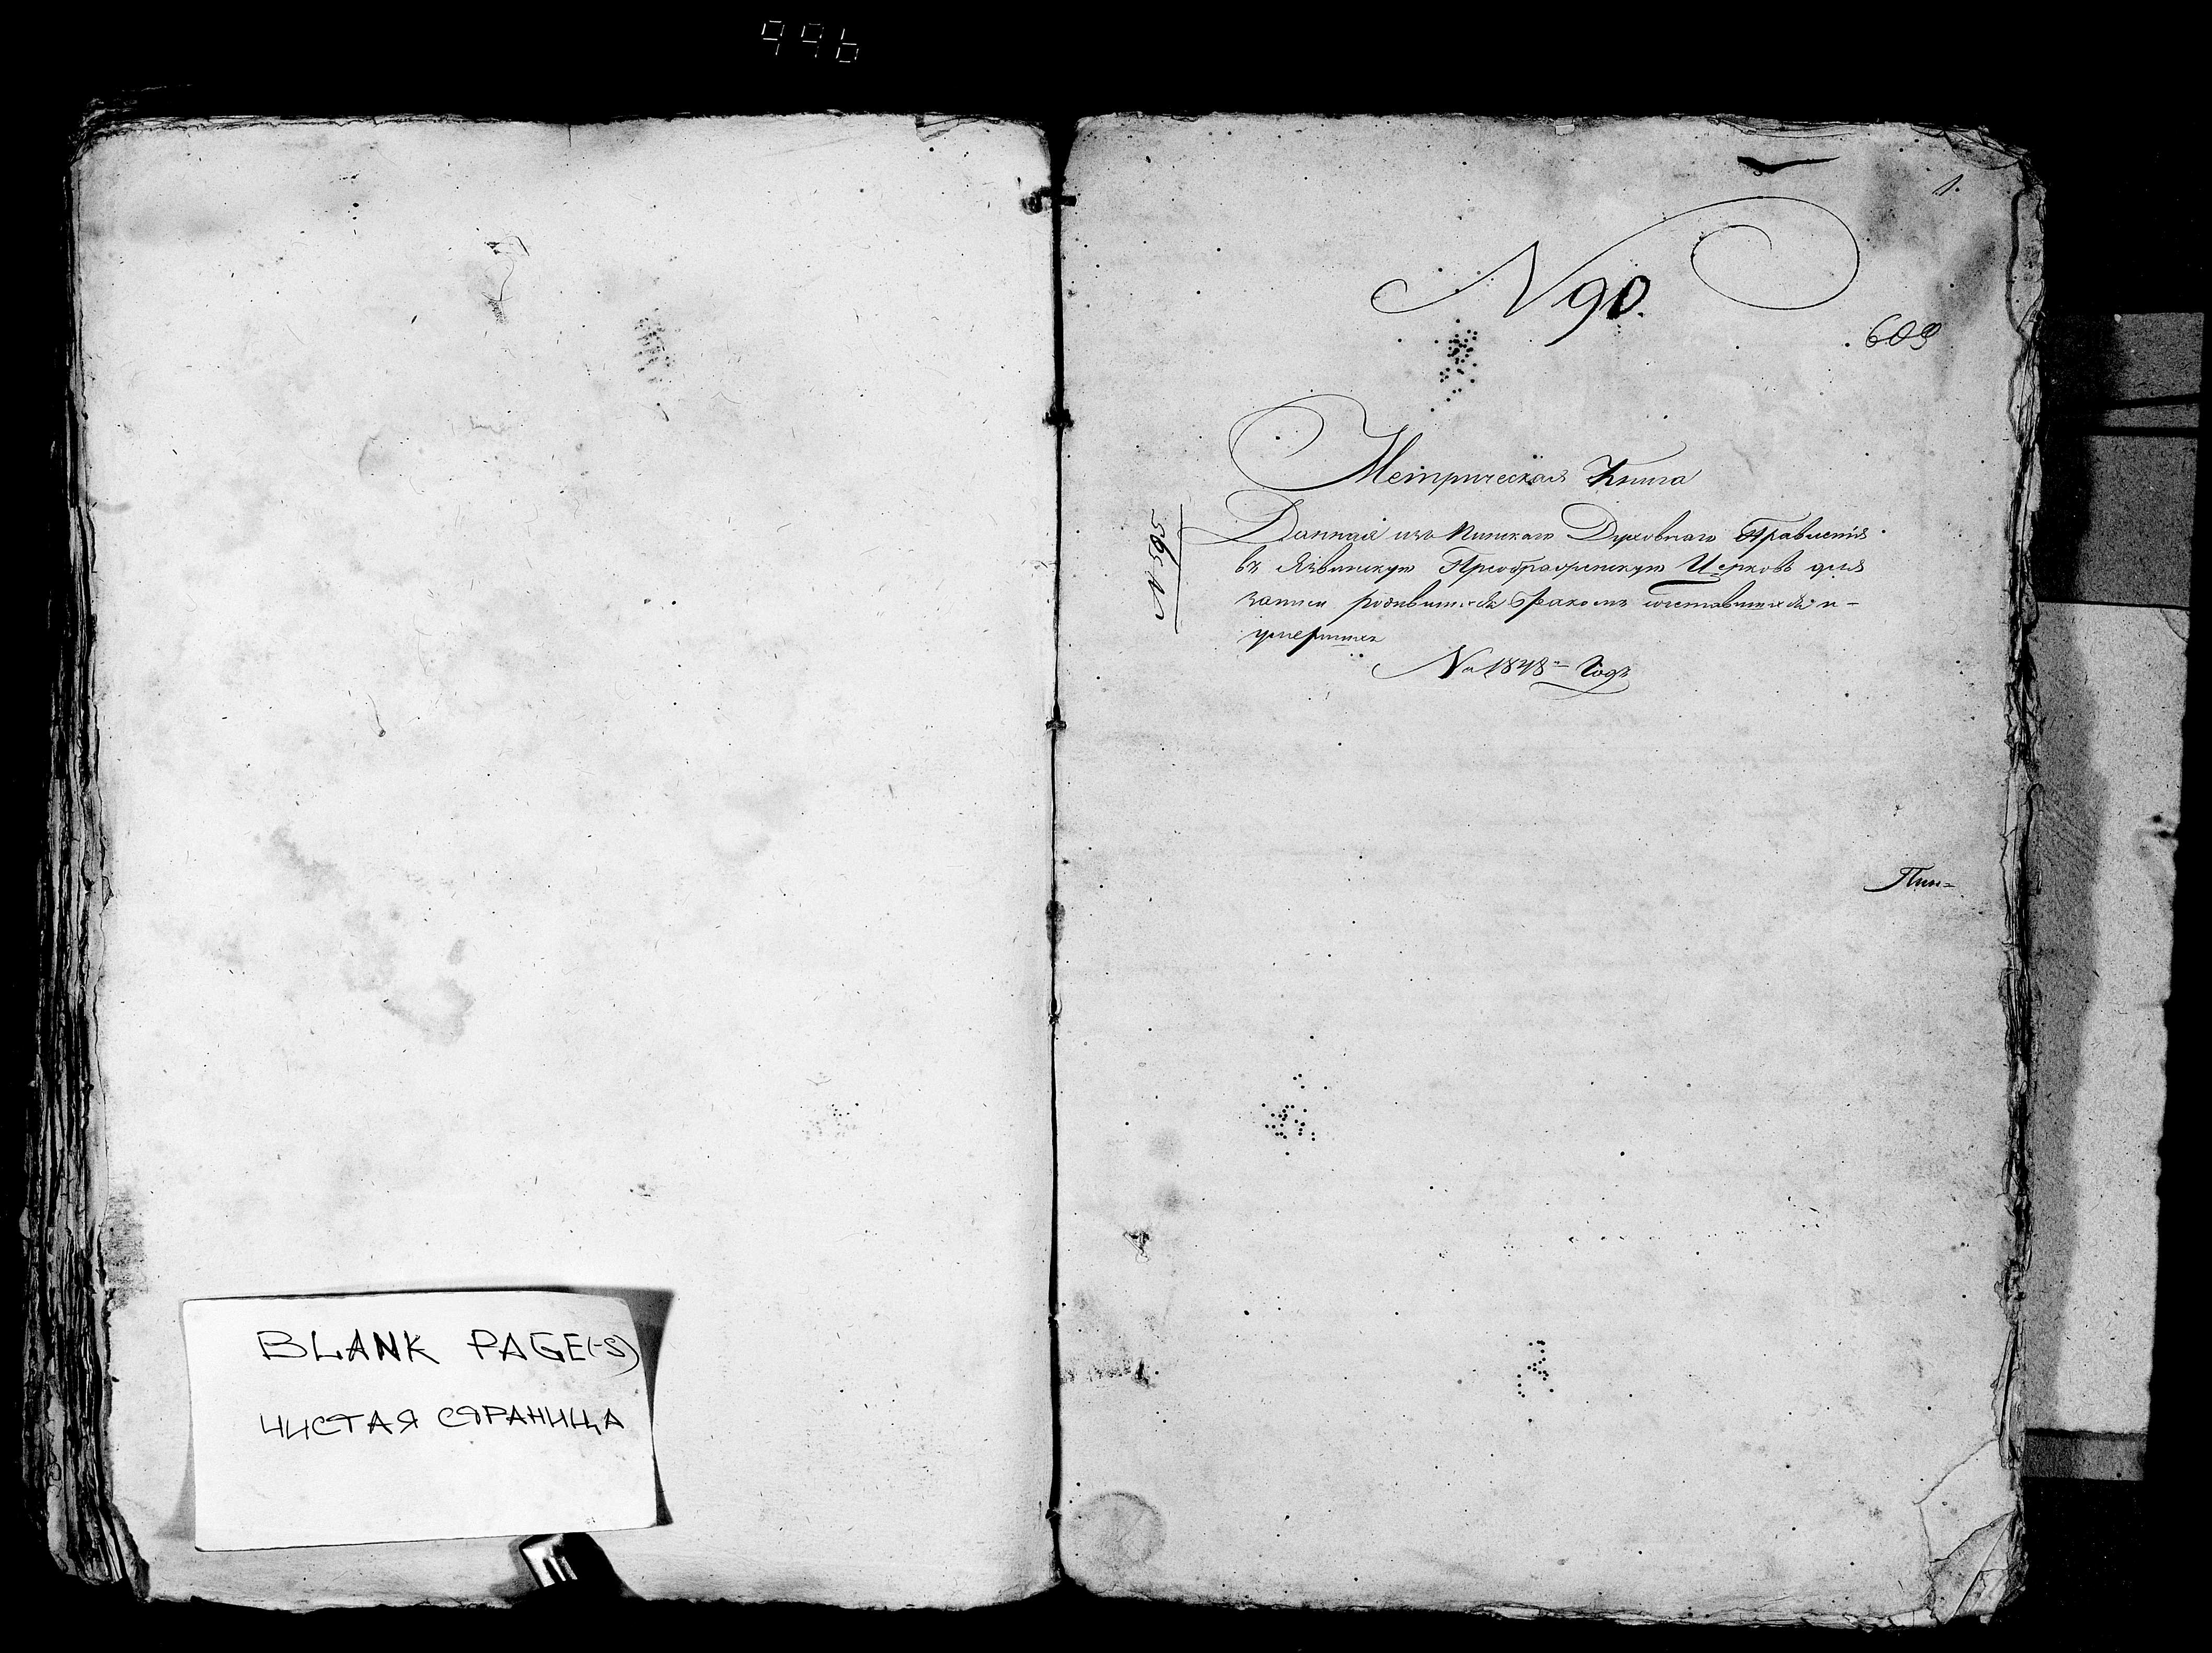 996
BLANK PAGE(-S)
ЧИСТАЯ СТРАНИЦА
1.
N 90.
609
Метрическая Книга
N 595
Данная изъ Пинскаго Духовнаго Правленія
въ Язвинскую Преображенскую Церковь для
записи родившихся бракомъ сочетавшихся и-
умершихъ
На 1848й Годъ
Пин=